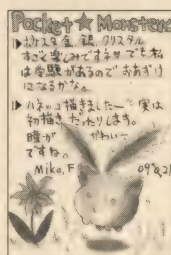 Pocket★Monsters
▶ ポケスタ 金 銀 クリスタル
すごく楽しみですネ でも私
は受験があるので おあずけ
になるかな。
▶ ハネッコ描きました〜 実は
初描き だったりします。
瞳が かわいー
ですね。
Mika.F